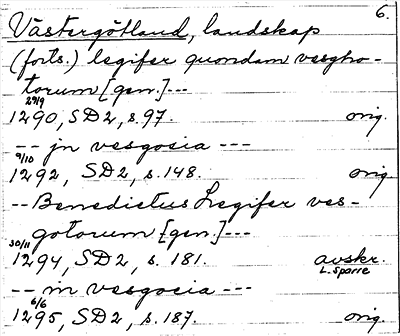 6.
Västergötland, landskap
(forts.) legifer quondam vesgho-
torum [gen.]---
29/9
1290, SD2, s. 97. orig.
-- jn vesgosia ---
9/10
1292, SD2, s. 148. orig.
-- Benedictus Legifer ves-
gotorum [gen.]---
30/11
1294, SD2, s. 181. avskr.
L. Sparre
-- in vesgosia ---
6/6
1295, SD2, s. 187. orig.